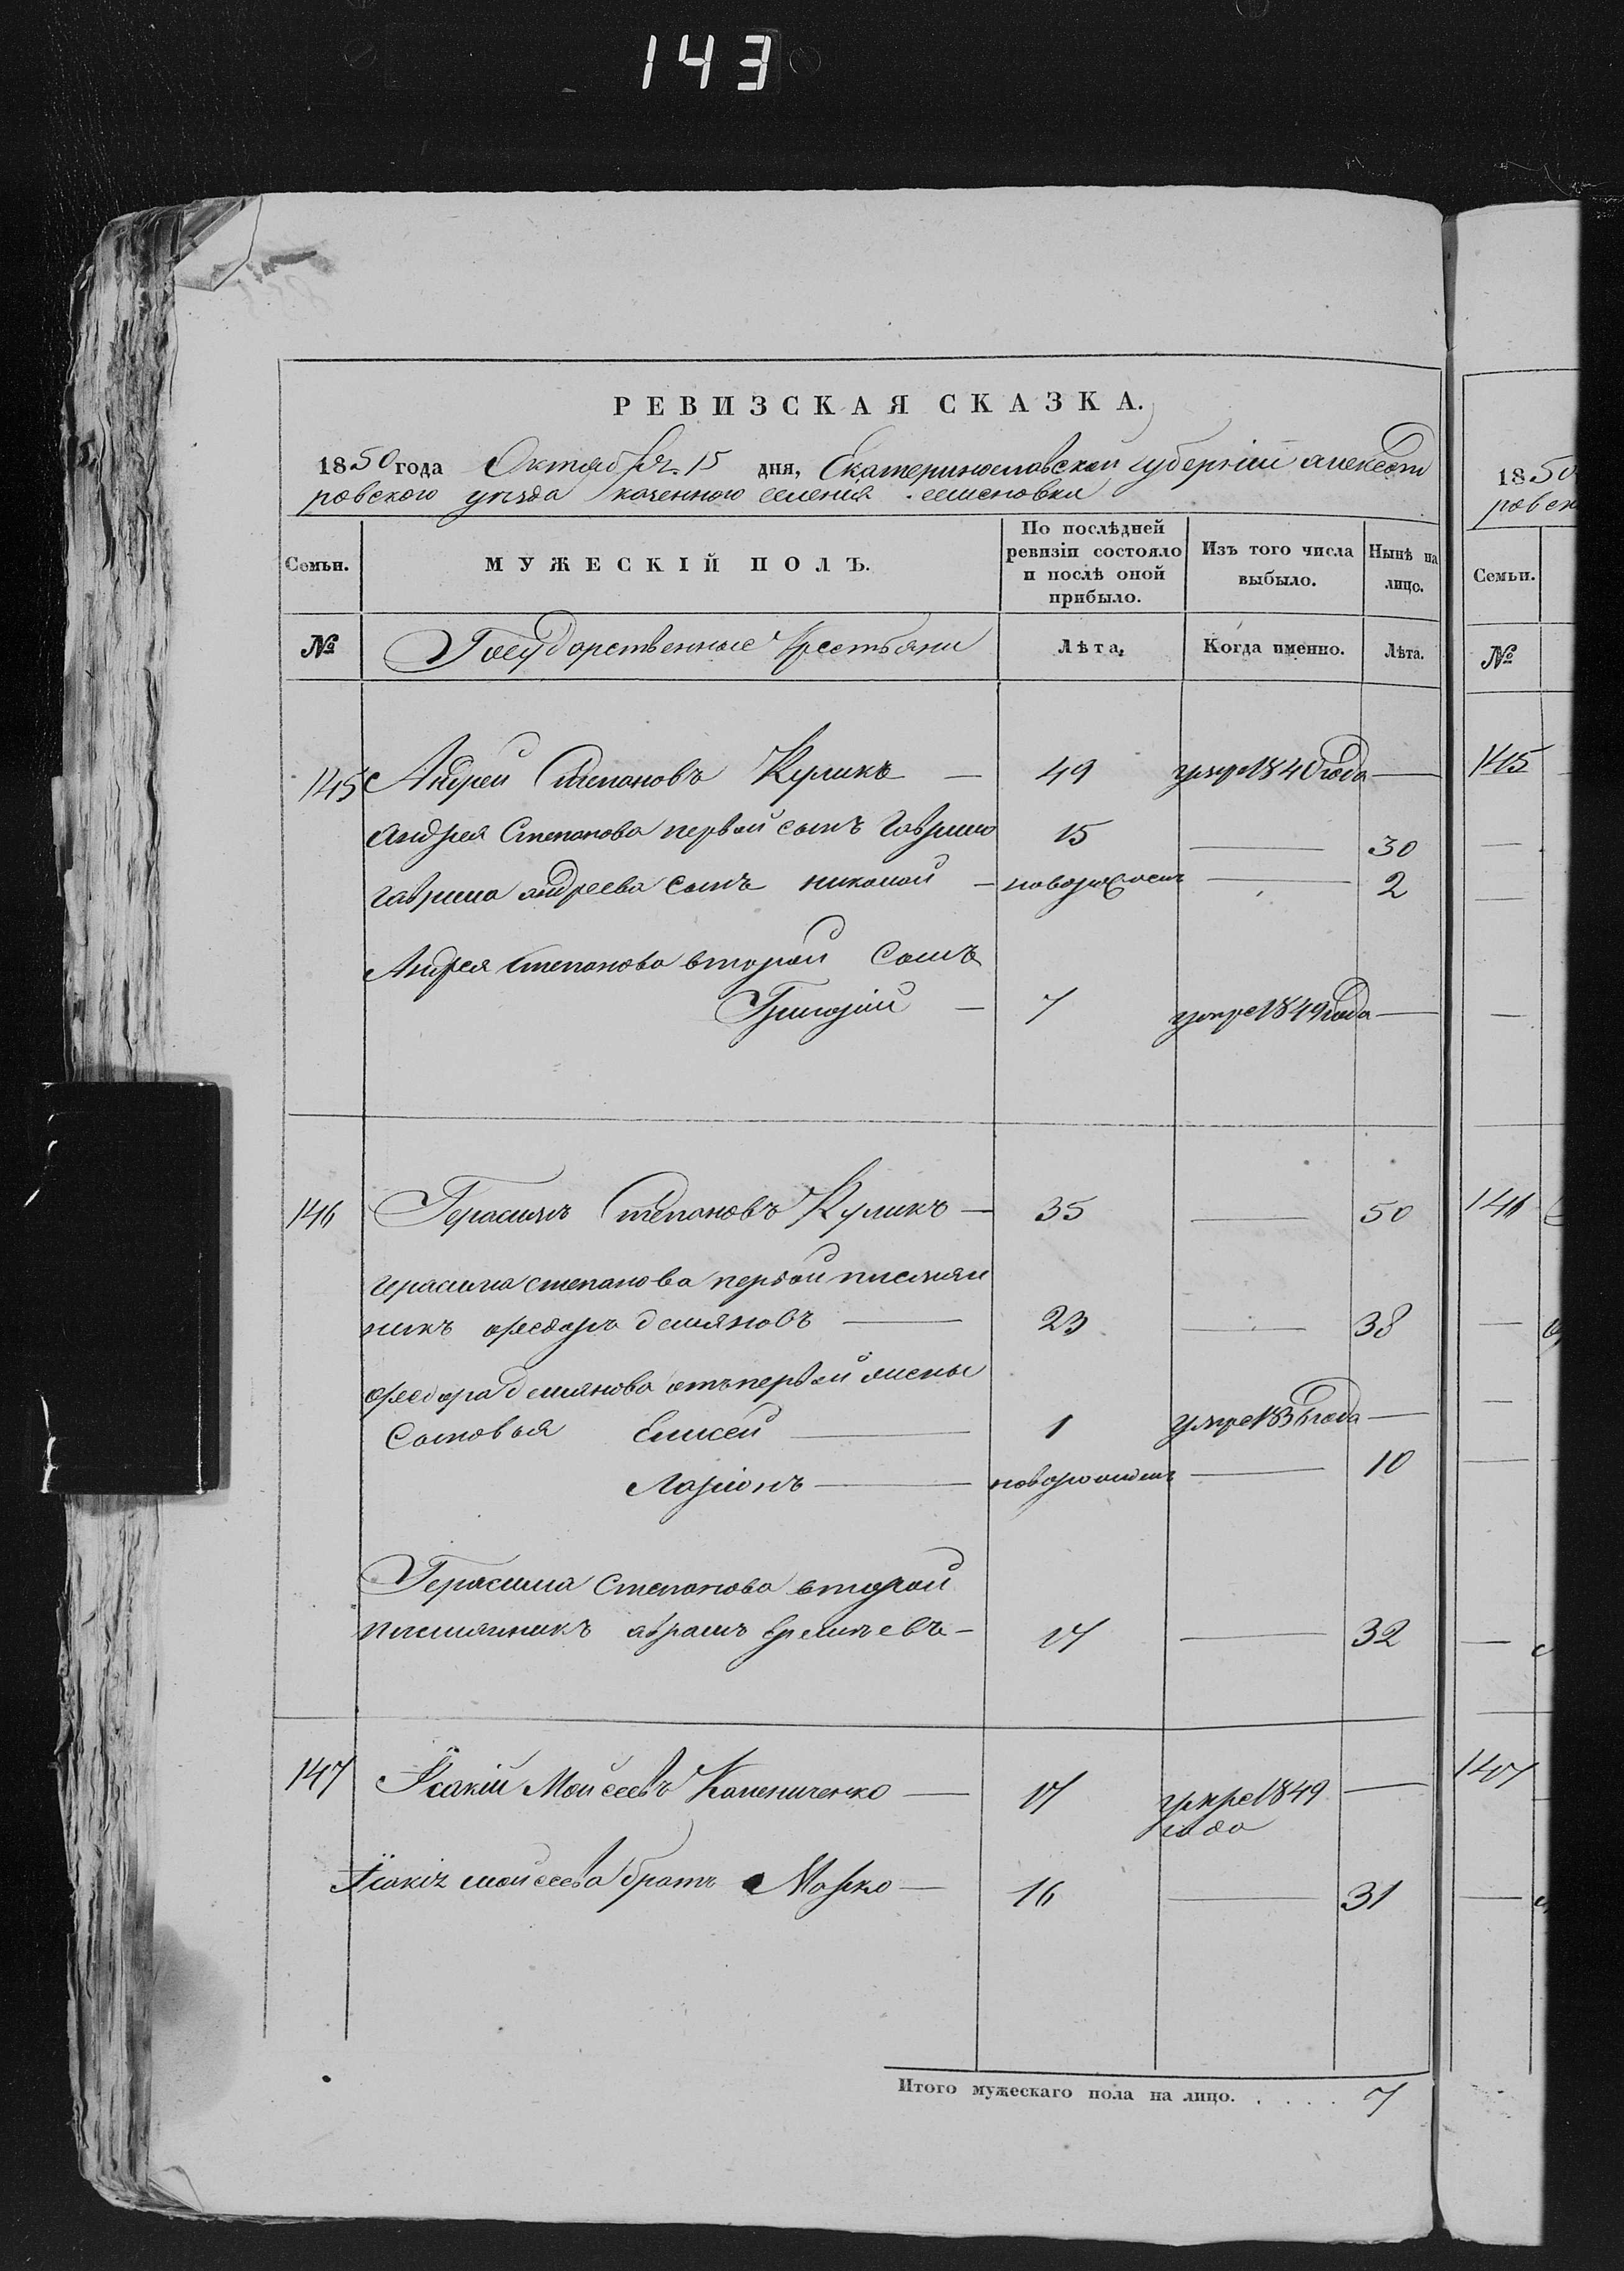 143
РЕВИЗСКАЯ СКАЗКА.
1850 года Октября 15 дня, Екатеринославской губерніи александ
ровского уезда казенного селения семеновки
Семьи.
МУЖЕСКІЙ ПОЛЪ.
По послѣдней ревизіи состояло и послѣ оной прибыло.
Изъ того числа выбыло.
Нынѣ на лицо.
№
Государственные крестьяни
Лѣта.
Когда именно.
Лѣта.
145 Андрей Степановъ Куликъ — 49 умре 1840 года —
Андрея Степанова первой сынъ Гаврило 15 — 30
Гаврила андреева сынъ николай — новорожденъ — 2
Андрея степанова второй сынъ
Григорій — 7 умре 1849 года —
146 Герасимъ Степановъ Куликъ — 35 — 50
герасима степанова первой племян
никъ федоръ демяновъ — 23 — 38
федора демянова отъ первой жены
сыновья Елисей — 1 умре 1836 года —
Ларіонъ — новорожденъ — 10
Герасима Степанова второй
племянникъ абрамъ — 17 — 32
147 Исакій Мойсеевъ — 17 умре 1849
года —
Исакія мойсеева братъ Марко — 16 — 31
Итого мужескаго пола на лицо. . . . . 7
1850
ровск
Семьи.
№
145
146
147